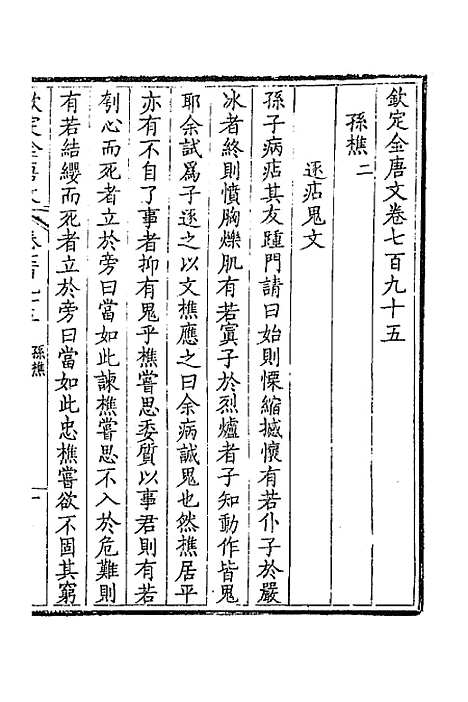 欽定全唐文卷七百九十五
孫樵二
逐痁鬼文
孫子病痁其友踵門請曰始則慄縮撼懷有若仆子於嚴
冰者終則憤胸爍肌有若寘子於烈爐者子知動作皆鬼
耶余試爲子逐之以文樵應之曰余病誠鬼也然樵居平
亦有不自了事者抑有鬼乎樵嘗思委質以事君則有若
刳心而死者立於旁曰當如此諫樵嘗思不入於危難則
有若結纓而死者立於旁曰當如此忠樵嘗欲不固其窮
欽定全唐文 卷七百九十五 孫樵 一